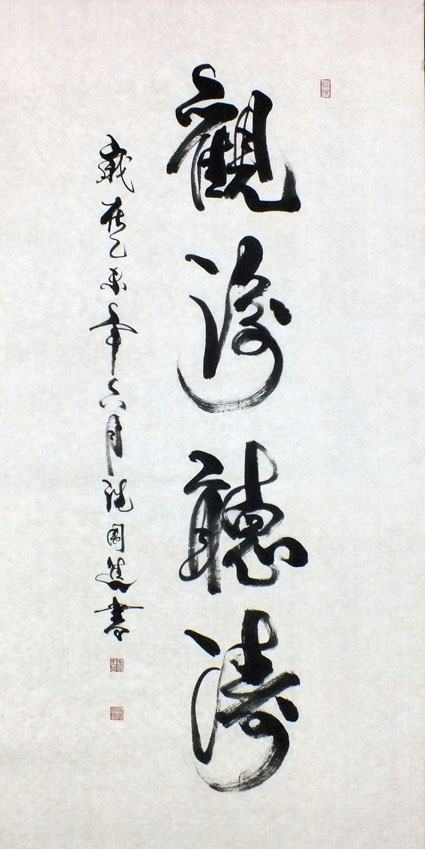 觀海聽濤
歲在乙未年六月國書